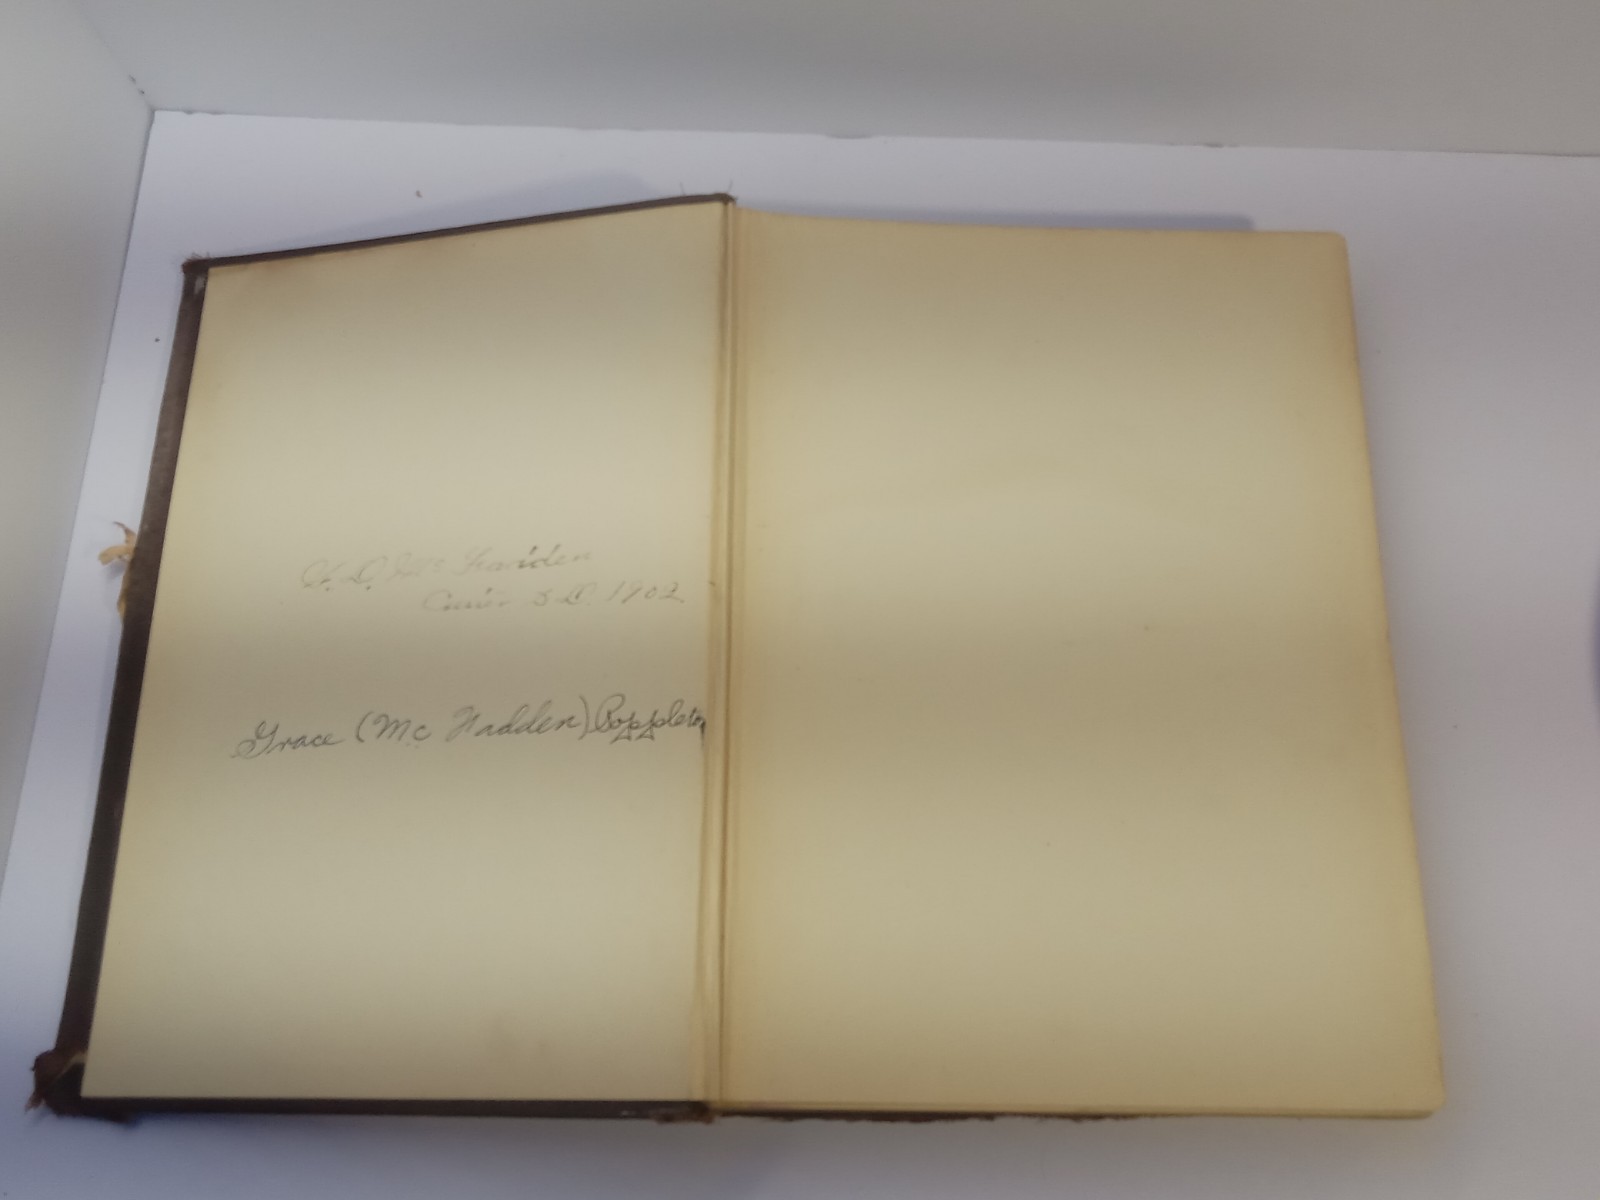 D. Mc Fadden
S.D. 1902
Grace (Mc Fadden) Poppleton